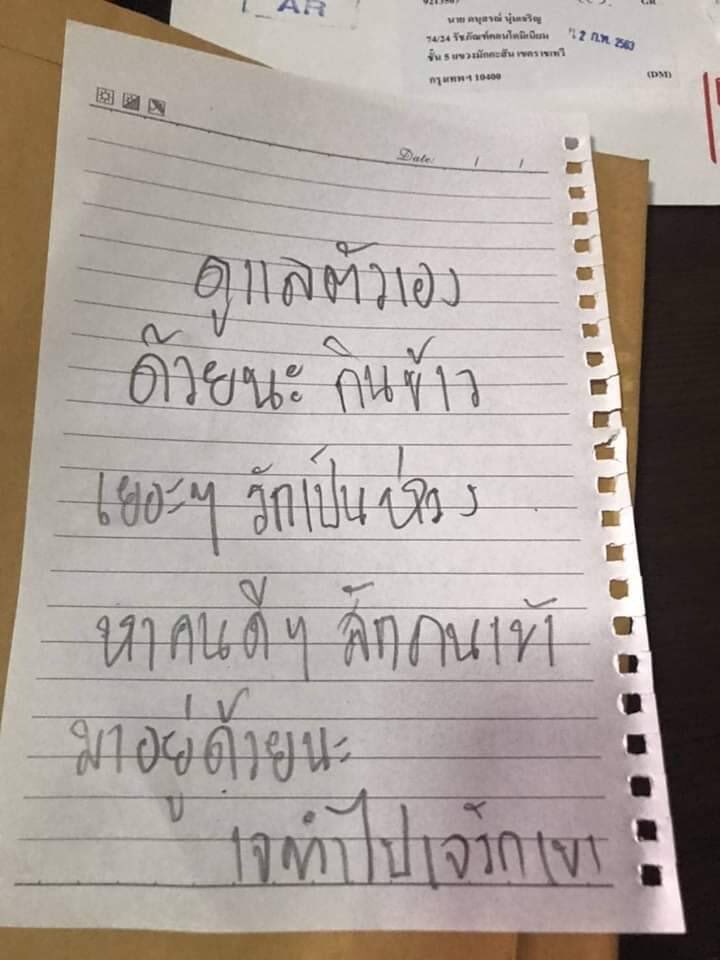 AR
นาย อนุสรณ์ นุ่มเจริญ
74/24 รัชภัณฑ์คอนโดมิเนียม
ชั้น 5 แขวงมักกะสัน เขตราชเทวี
กรุงเทพฯ 10400
(DM)
12 ก.พ. 2563
Date: / /
ดูแลตัวเอง
ด้วยนะ กินข้าว
เยอะๆ รักเป็นห่วง
หาคนดีๆ สักคนเข้า
มาอยู่ด้วยนะ
เจทำไปเจรักเขา